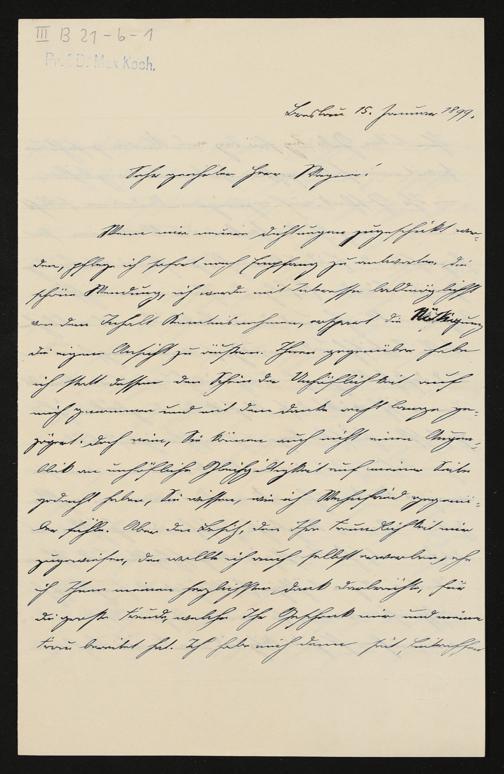 III B 21-6-1
Prof. Dr. Max Koch.
Breslau 15. Januar 1899.
Sehr geehrter Herr Wagner!
Wenn mir neue Dichtungen zugeschickt wer-
den, pflege ich sofort nach Empfang zu antworten, die
schöne Wendung, ich werde mit Interesse baldmöglichst
von dem Inhalt Kenntnis nehmen, erspart die Nötigung
die eigene Ansicht zu äußern. Ihnen gegenüber habe
ich statt dessen den Schein der Unhöflichkeit auf
mich genommen und mit dem Danke recht lange ge-
zögert; doch nein, Sie können auch nicht einen Augen-
blick an unhöfliche Gleichgültigkeit auf meiner Seite
gedacht haben, Sie wissen, wie ich Wahnfried gegenü-
ber fühle. Aber den Besitz, den Ihre Freundlichkeit mir
zugewiesen, den wollte ich auch selbst erwerben, ehe
ich Ihnen meinen herzlichsten Dank darbrächte, für
die große Freude, welche Ihr Geschenk mir und meiner
Frau bereitet hat. Ich habe mich denn